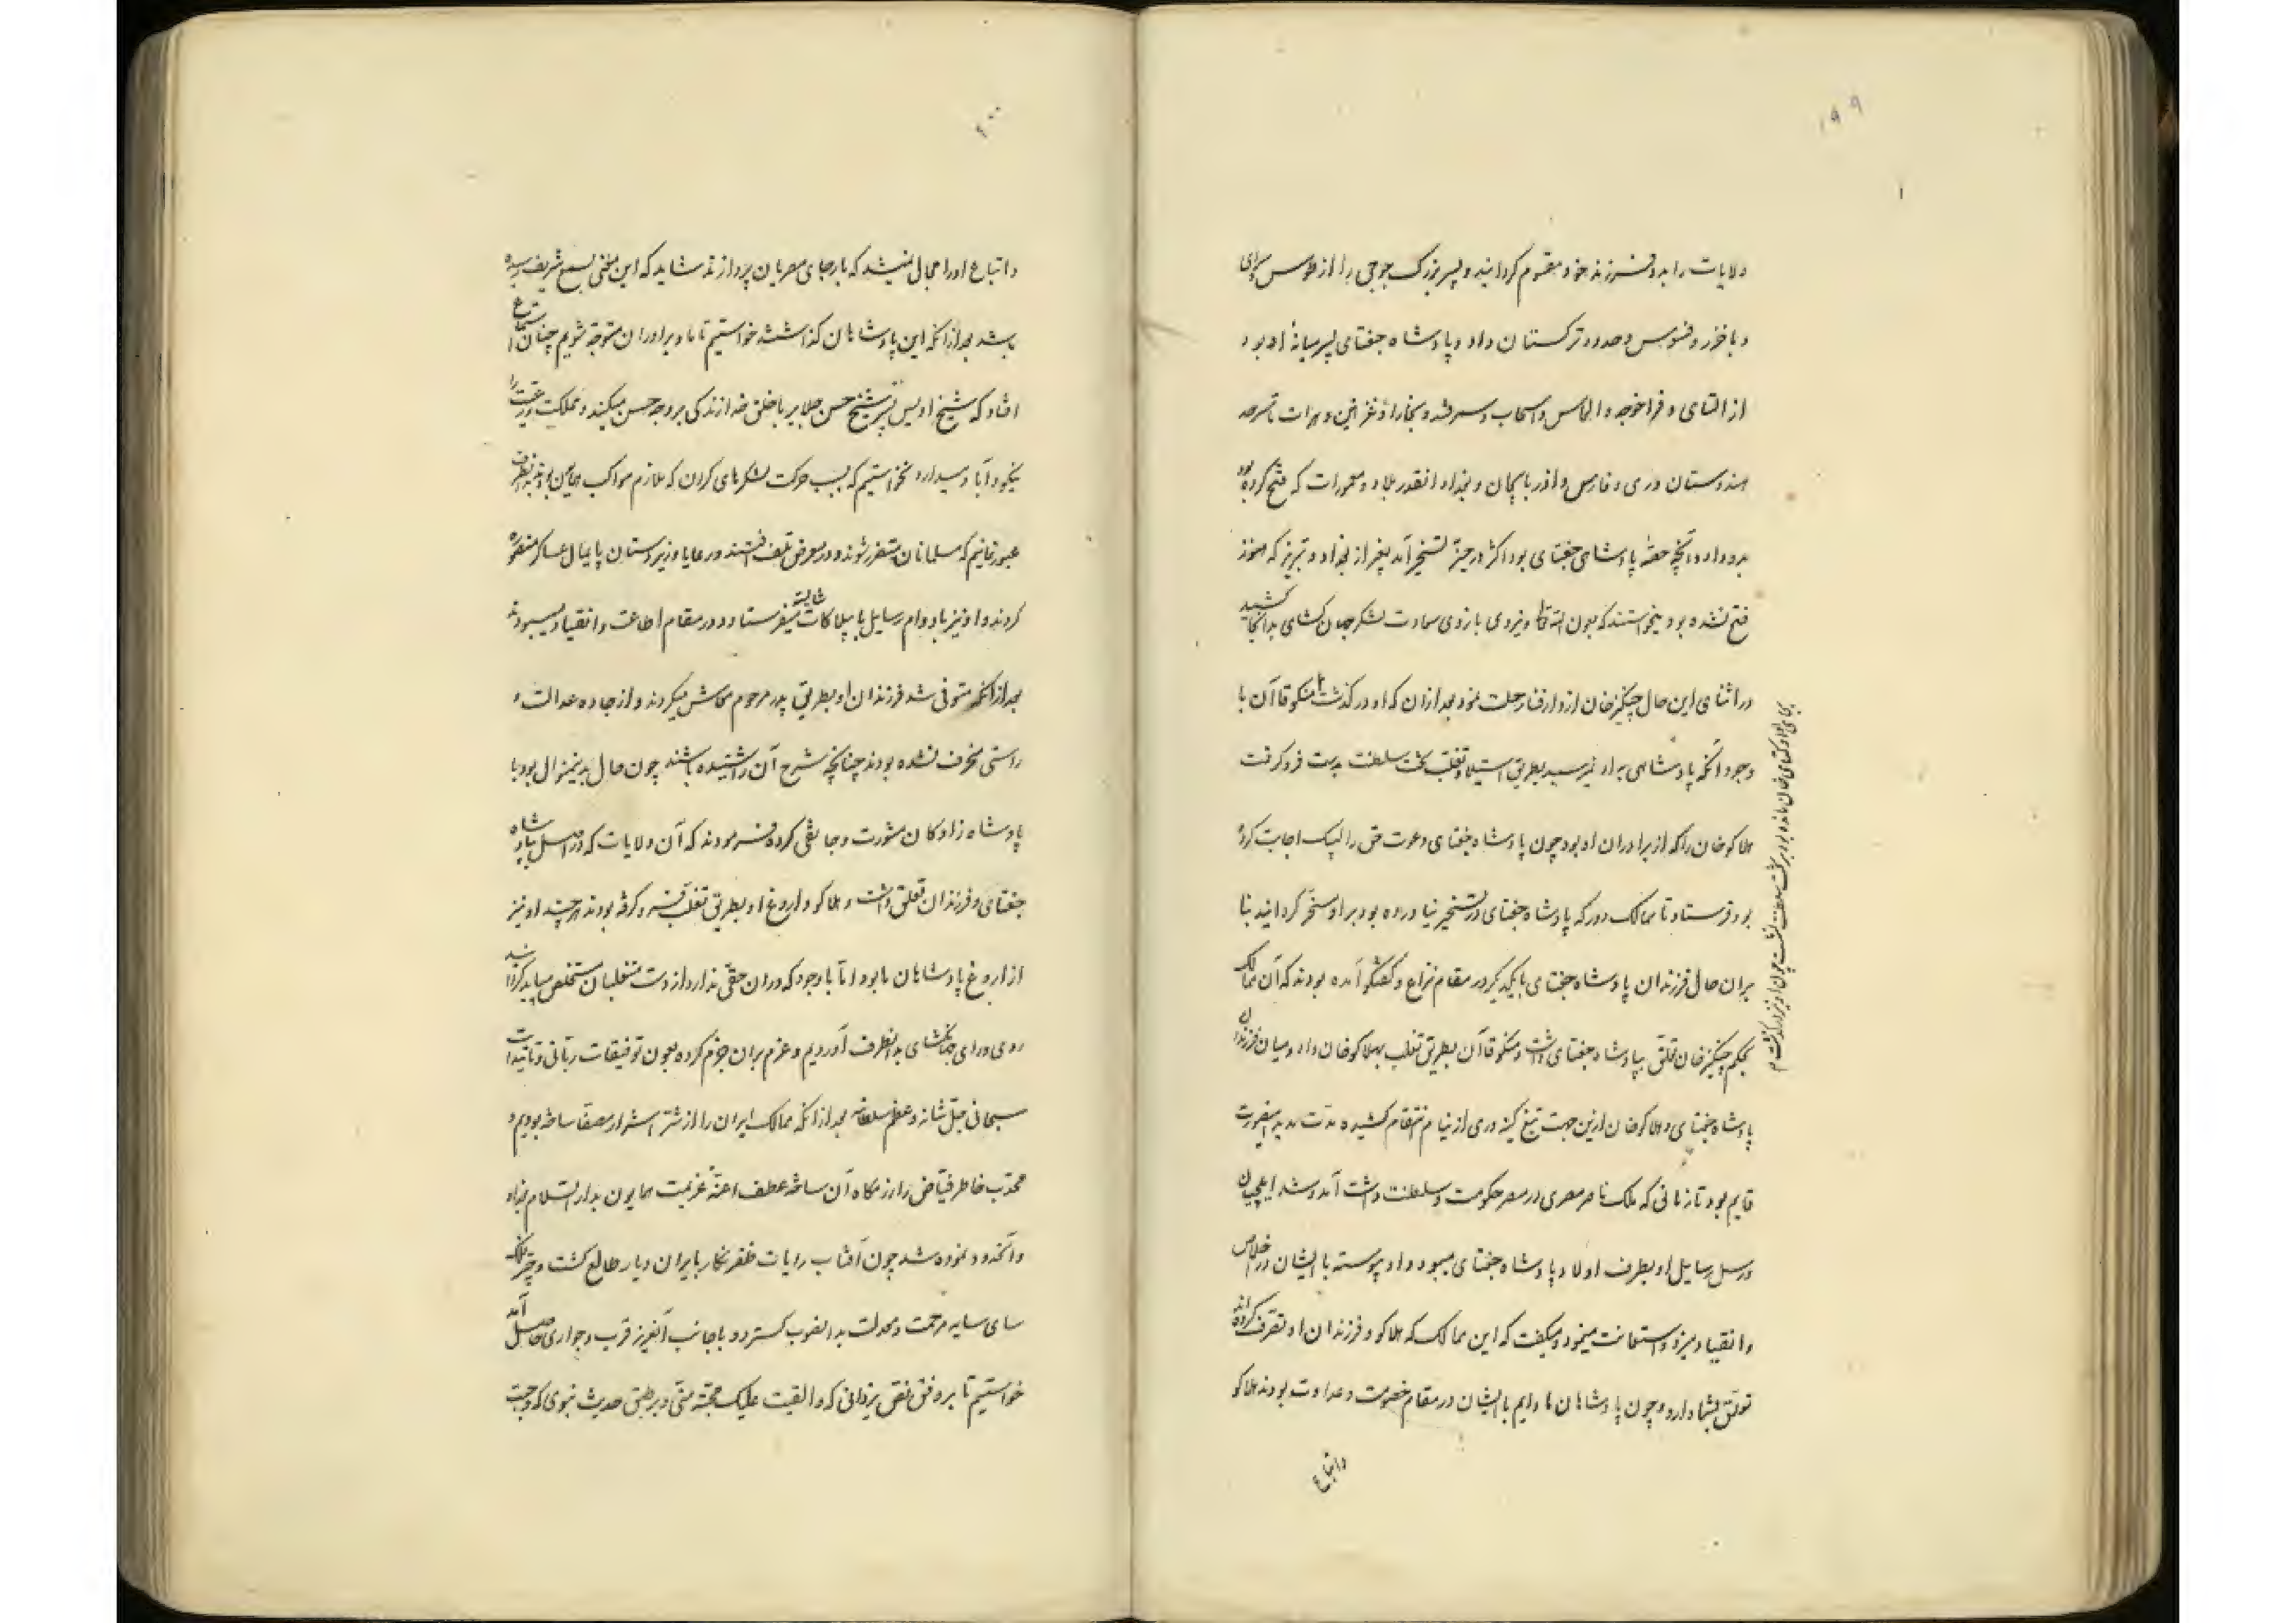 ۱۹۹
ولایات را بدو فرزند خود مقسوم کردانید و پسر بزرک جوجی را از طوس سرای
و باخزر و فنوس و حدود ترکستان داد و پادشاه جغتای پسر میانهٔ او بود و
از التای و قراخوجه و الماس و اسحاب و سمرقند و بخارا و غزنین و هرات تا سرحد
هندوستان و ری و فارس و اذربایجان و بغداد انقدر بلاد و معمورات که فتح کرده بود
بدو داد و آنچه حصهٔ پادشاهی جغتای بود اکثر در حیز تسخیر آمد بغیر از بغداد و تبریز که هنوز
فتح نشده بود میخواستند که بعون الله تعالی و نیروی بازوی سعادت لشکر جهان کشای بدانجا کشید
در اثنای این حال چنکیز خان از دار فنا رحلت نمود بعد از ان که او در کذشت منکو قاآن با
وجود آنکه پادشاهی به او نمیرسید بطریق استیلا و تغلب تخت سلطنت بدست فرو کرفت
هلاکو خان را که از برادران او بود چون پادشاه جغتای دعوت حق را لبیک اجابت کرده
بود فرستاد تا ممالک دور که پادشاه جغتای در تسخیر نیاورده بود برا و مسخر کرداند بنا
بران حال فرزندان پادشاه جغتای با یکدیکر در مقام نزاع و کفتکو آمده بودند که آن ممالک
بحکم چنکیز خان تعلق بپادشاه جغتای داشت و منکو قاآن بطریق تغلب بهلاکو خان داد و میان فرزندان
پادشاه جغتای و هلاکو خان ازین جهت تیغ کینه وری از نیام انتقام کشیده مدت مدید اینصورت
قایم بود تا زمانی که ملک ناصر مصری در مصر حکومت و سلطنت داشت آمد و شد ایلچیان
و رسل رسایل او بطرف اولاد پادشاه جغتای میبود و او پیوسته با ایشان در اخلاص
و انقیاد میزد و استمانت مینمود و میکفت که این ممالک که هلاکو و فرزندان او تصرف کرده اند
تعلق بشما دارد و چون پادشاهان ما دایم با ایشان در مقام خصومت و عداوت بودند هلاکو
و اتباع
بجای او اوکتای خان مانده بود بر تخت سلطنت نشست چون او نیز در کذشت
۲۰۰
و اتباع او را مجال نمیشد که بارجای مصریان پردازند شاید که این سخن بسمع شریف رسیده
باشد بعد از انکه این پادشاهان کذاشتند خواستیم تا ما و برادران متوجه شویم چنان استماع
افتاد که شیخ اویس پسر شیخ حسن جلایر با خلق خدا زندکی بر وجه حسن میکند و مملکت و رعیت را
نیکو و آباد میدارد نخواستیم که بسبب حرکت لشکرهای کران که ملازم مواکب همایون بودند بدانطرف
عبور نمائیم که مسلمانان متضرر شوند و در معرض تلف افتند و رعایا و زیردستان پایمال عساکر منصوره
کردند و او نیز بادوام رسایل با بیلاکات شایسته میفرستاد و در مقام اطاعت و انقیاد میبودند
بعد از انکه متوفی شد فرزندان او بطریق پدر مرحوم معاش میکردند و از جاده عدالت و
راستی منحرف نشده بودند چنانچه شرح آن را شنیده باشند چون حال بدینمنوال بود با
پادشاه زادکان مشورت و جانقی کرده فرمودند که آن ولایات که در اصل بپادشاه
جغتای و فرزندان تعلق داشت و هلاکو و اروغ او بطریق تغلب فرو کرفته بودند هر چند او نیز
از اروغ پادشاهان ما بود اما با وجود که در ان حقی ندارد از دست متغلبان مستخلص میباید کردانید
روی و رای جهانکشای بدانطرف آوردیم و عزم بران جزم کرده بعون توفیقات ربانی و تائیدات
سبحانی جل شانه و عظم سلطانه بعد از انکه ممالک ایران را از شر اشرار مصفا ساخته بودیم و
محدب خاطر فیاض را رزمکاه آن ساخته عطف اعنه عزیمت همایون بدار السلام بغداد
و آنحدود نموده شد چون آفتاب رایات ظفر نکار بایران دیار طالع کشت و چتر فلک
سای سایه مرحمت و معدلت بدانصوب کسترد و با جانب آنعزیز قرب و جواری حاصل آمد
خواستیم تا بر وفق نص یزدانی که و القیت علیک محبة منی و بر طبق حدیث نبوی که وجبت